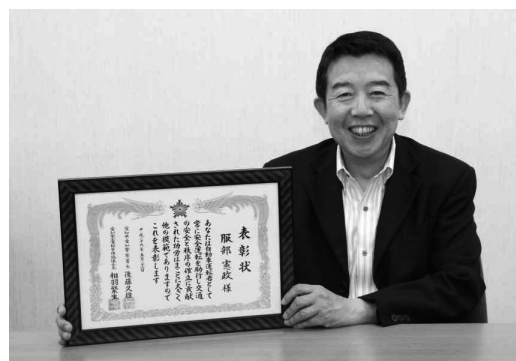 表彰状
服部憲政様
あなたは自動車運転者として
常に安全運転を励行し交通
の安全と秩序の確立に貢献
された功労はまことに大きく
他の模範でありますので
これを表彰します
後藤久雄
相羽繁生